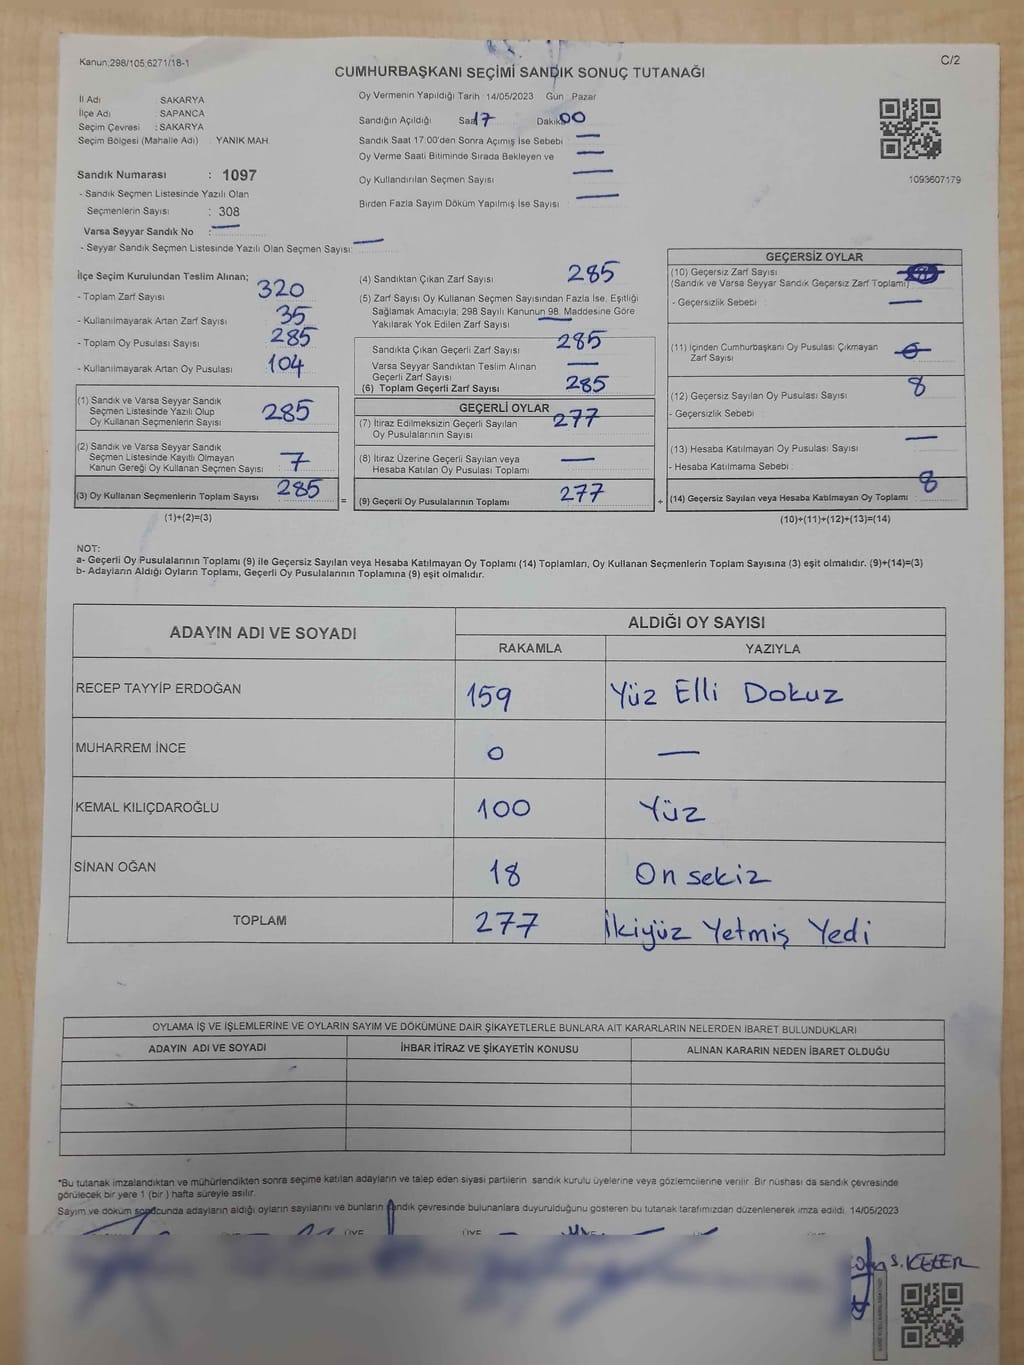 Kanun:298/105,6271/18-1
C/2
CUMHURBAŞKANI SEÇİMİ SANDIK SONUÇ TUTANAĞI
İl Adı : SAKARYA
İlçe Adı : SAPANCA
Seçim Çevresi : SAKARYA
Seçim Bölgesi (Mahalle Adı) : YANIK MAH.
Sandık Numarası : 1097
- Sandık Seçmen Listesinde Yazılı Olan
Seçmenlerin Sayısı : 308
Varsa Seyyar Sandık No : —
- Seyyar Sandık Seçmen Listesinde Yazılı Olan Seçmen Sayısı: —
Oy Vermenin Yapıldığı Tarih : 14/05/2023 Gün : Pazar
Sandığın Açıldığı Saat 17 Dakika 00
Sandık Saat 17:00'den Sonra Açımış İse Sebebi : —
Oy Verme Saati Bitiminde Sırada Bekleyen ve —
Oy Kullandırılan Seçmen Sayısı —
Birden Fazla Sayım Döküm Yapılmış İse Sayısı : —
1093607179
İlçe Seçim Kurulundan Teslim Alınan;
- Toplam Zarf Sayısı 320
- Kullanılmayarak Artan Zarf Sayısı : 35
- Toplam Oy Pusulası Sayısı : 285
- Kullanılmayarak Artan Oy Pusulası 104
(1) Sandık ve Varsa Seyyar Sandık
Seçmen Listesinde Yazılı Olup
Oy Kullanan Seçmenlerin Sayısı 285
(2) Sandık ve Varsa Seyyar Sandık
Seçmen Listesinde Kayıtlı Olmayan
Kanun Gereği Oy Kullanan Seçmen Sayısı 7
(3) Oy Kullanan Seçmenlerin Toplam Sayısı 285
(1)+(2)=(3)
(4) Sandıktan Çıkan Zarf Sayısı 285
(5) Zarf Sayısı Oy Kullanan Seçmen Sayısından Fazla İse, Eşitliği
Sağlamak Amacıyla; 298 Sayılı Kanunun 98. Maddesine Göre
Yakılarak Yok Edilen Zarf Sayısı —
Sandıkta Çıkan Geçerli Zarf Sayısı 285
Varsa Seyyar Sandıktan Teslim Alınan
Geçerli Zarf Sayısı —
(6) Toplam Geçerli Zarf Sayısı 285
GEÇERLİ OYLAR
(7) İtiraz Edilmeksizin Geçerli Sayılan
Oy Pusulalarının Sayısı 277
(8) İtiraz Üzerine Geçerli Sayılan veya
Hesaba Katılan Oy Pusulası Toplamı —
= (9) Geçerli Oy Pusulalarının Toplamı 277
GEÇERSİZ OYLAR
(10) Geçersiz Zarf Sayısı
(Sandık ve Varsa Seyyar Sandık Geçersiz Zarf Toplamı)
- Geçersizlik Sebebi : —
(11) İçinden Cumhurbaşkanı Oy Pusulası Çıkmayan
Zarf Sayısı
(12) Geçersiz Sayılan Oy Pusulası Sayısı 8
- Geçersizlik Sebebi
(13) Hesaba Katılmayan Oy Pusulası Sayısı —
- Hesaba Katılmama Sebebi :
+ (14) Geçersiz Sayılan veya Hesaba Katılmayan Oy Toplamı 8
(10)+(11)+(12)+(13)=(14)
NOT:
a- Geçerli Oy Pusulalarının Toplamı (9) ile Geçersiz Sayılan veya Hesaba Katılmayan Oy Toplamı (14) Toplamları, Oy Kullanan Seçmenlerin Toplam Sayısına (3) eşit olmalıdır. (9)+(14)=(3)
b- Adayların Aldığı Oyların Toplamı, Geçerli Oy Pusulalarının Toplamına (9) eşit olmalıdır.
ADAYIN ADI VE SOYADI
ALDIĞI OY SAYISI
RAKAMLA YAZIYLA
RECEP TAYYİP ERDOĞAN 159 Yüz Elli Dokuz
MUHARREM İNCE 0 —
KEMAL KILIÇDAROĞLU 100 Yüz
SİNAN OĞAN 18 On sekiz
TOPLAM 277 İkiyüz Yetmiş Yedi
OYLAMA İŞ VE İŞLEMLERİNE VE OYLARIN SAYIM VE DÖKÜMÜNE DAİR ŞİKAYETLERLE BUNLARA AİT KARARLARIN NELERDEN İBARET BULUNDUKLARI
ADAYIN ADI VE SOYADI İHBAR İTİRAZ VE ŞİKAYETİN KONUSU ALINAN KARARIN NEDEN İBARET OLDUĞU
*Bu tutanak imzalandıktan ve mühürlendikten sonra seçime katılan adayların ve talep eden siyasi partilerin sandık kurulu üyelerine veya gözlemcilerine verilir. Bir nüshası da sandık çevresinde
görülecek bir yere 1 (bir) hafta süreyle asılır.
Sayım ve döküm sonucunda adayların aldığı oyların sayılarını ve bunların sandık çevresinde bulunanlara duyurulduğunu gösteren bu tutanak tarafımızdan düzenlenerek imza edildi. 14/05/2023
ÜYE ÜYE ÜYE ÜYE ÜYE